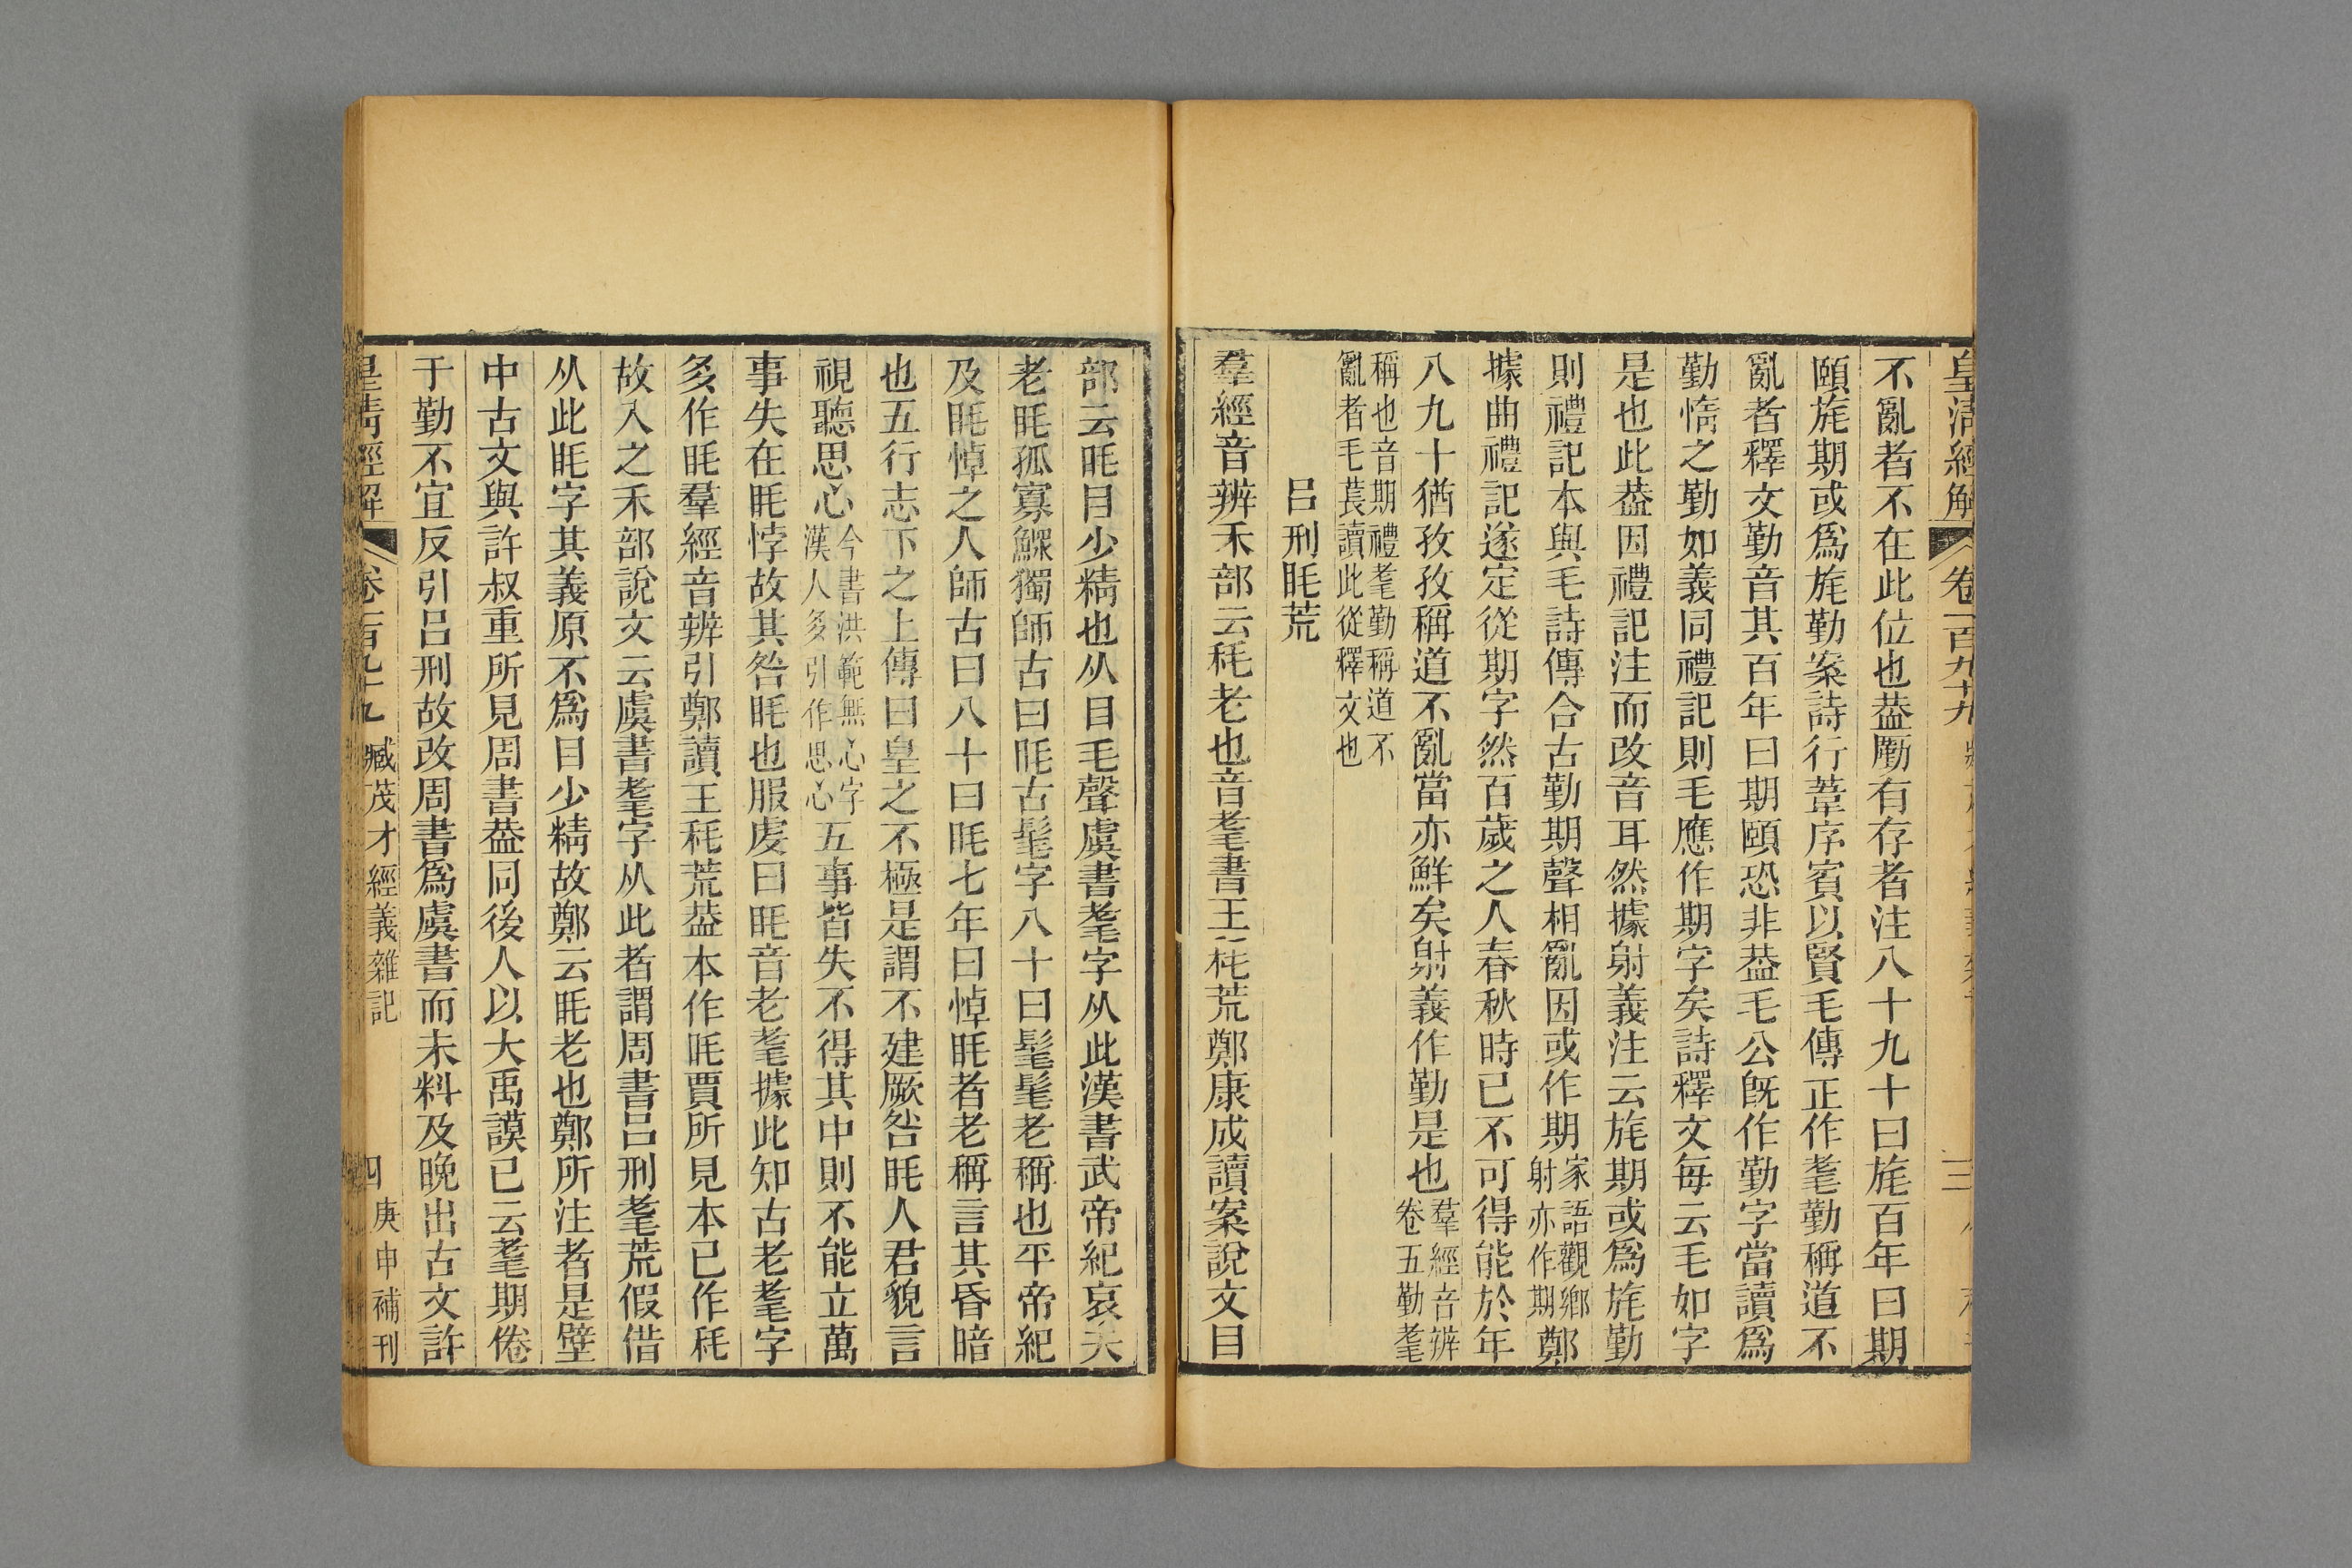 皇淸經解 卷一百九十九 三
不亂者不在此位也葢勵有存者注八十九十曰旄百年曰期
頤旄期或爲旄勤案詩行葦序賓以賢毛傳正作耄勤稱道不
亂者釋文勤音其百年曰期頤恐非葢毛公旣作勤字當讀爲
勤惰之勤如義同禮記則毛應作期字矣詩釋文每云毛如字
是也此葢因禮記注而改音耳然據射義注云旄期或爲旄勤
則禮記本與毛詩傳合古勤期聲相亂因或作期家語觀鄉射亦作期鄭
據曲禮記遂定從期字然百歲之人春秋時已不可得能於年
八九十猶孜孜稱道不亂當亦鮮矣射義作勤是也羣經音辨卷五勤耄
稱也音期禮耄勤稱道不
亂者毛萇讀此從釋文也
呂刑眊荒
羣經音辨禾部云秏老也音耄書王秏荒鄭康成讀案說文目
部云眊目少精也从目毛聲虞書耄字从此漢書武帝紀哀夫
老眊孤寡鰥獨師古曰眊古髦字八十曰髦髦老稱也平帝紀
及眊悼之人師古曰八十曰眊七年曰悼眊者老稱言其昏暗
也五行志下之上傳曰皇之不極是謂不建厥咎眊人君貌言
視聽思心今書洪範無心字漢人多引作思心五事皆失不得其中則不能立萬
事失在眊悖故其咎眊也服虔曰眊音老耄據此知古老耄字
多作眊羣經音辨引鄭讀王秏荒葢本作眊賈所見本已作秏
故入之禾部說文云虞書耄字从此者謂周書呂刑耄荒假借
从此眊字其義原不爲目少精故鄭云眊老也鄭所注者是壁
中古文與許叔重所見周書葢同後人以大禹謨已云耄期倦
于勤不宜反引呂刑故改周書爲虞書而未料及晚出古文許
皇淸經解 卷一百九十九 臧茂才經義雜記 四 庚申補刊